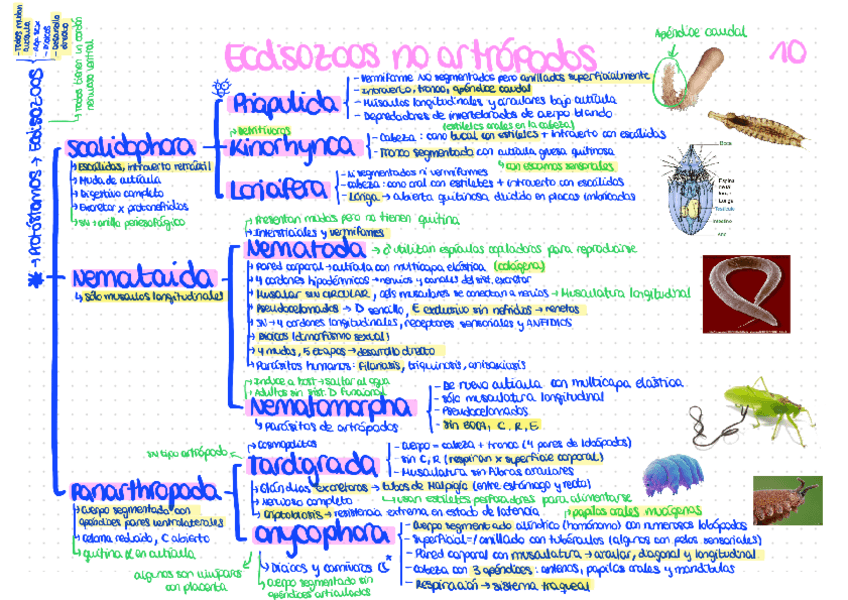 Ecdisozoos no artrópodos
10
* → Protóstomos → Ecdisozoos
- Todos mudan cutícula
- Rep. sex
- Dioicos
- Desarrollo directo
→ Todos tienen un cordón nervioso ventral
Scalidophora
↳ Escálidos, introverto retráctil
↳ Muda de cutícula
↳ Digestivo completo
↳ Excretor x protonefridios
↳ SN → anillo periesofágico
Priapulida
- Vermiforme no segmentados pero anillados superficialmente
- Introverto, tronco, apéndice caudal
- Músculos longitudinales y circulares bajo cutícula
- Depredadores de invertebrados de cuerpo blando
Apéndice caudal
↳ Detritívoros
Kinorhynca
(estiletes orales en la cabeza)
- Cabeza: cono bucal con estiletes + introverto con escálidos
- Tronco segmentado con cutícula gruesa quitinosa
↳ con escamas sensoriales
Loricifera
- Ni segmentados ni vermiformes
- Cabeza: cono oral con estiletes + introverto con escálidos
- Loriga → cubierta quitinosa, dividida en placas imbricadas
Boca
Faringe
Loriga
Testículo
Intestino
Ano
Nematoida
↳ sólo musculos longitudinales
↳ Presentan mudas pero no tienen quitina
↳ Intersticiales y vermiformes
Nematoda
→ ♂ utilizan espículas copuladoras para reproducirse
↳ Pared corporal → cutícula con multicapa elástica (colágeno)
↳ 4 cordones hipodérmicos → nervios y canales del sist. excretor
↳ Muscular SIN CIRCULAR, céls musculares se conectan a nervios → Musculatura longitudinal
↳ Pseudocelomados → D sencillo, E exclusivo sin nefridios → renetas
↳ SN → 4 cordones longitudinales, receptores sensoriales y ANFIDIOS
↳ Dioicos (dimorfismo sexual)
↳ 4 mudas, 5 etapas → desarrollo directo
↳ Parásitos humanos: filariosis, triquinosis, anisakiasis
↳ Induce a host → saltar al agua
↳ Adultos sin sist. D funcional
Nematomorpha
↳ Parásitos de artrópodos
- De nuevo cutícula con multicapa elástica
- Sólo musculatura longitudinal
- Pseudocelomados
- Sin boca, C, R, E
Panarthropoda
↳ Cuerpo segmentado con apéndices pares ventrolaterales
↳ Celoma reducido, C abierto
↳ quitina α en cutícula
SN tipo artrópodo
↳ Cosmopolitas
Tardigrada
- Cuerpo → cabeza + tronco (4 pares de lobópodos)
- Sin C, R (respiran x superficie corporal)
- Musculatura sin fibras circulares
↳ Glándulas excretoras → tubos de Malpigio (entre estómago y recto)
↳ Nervioso completo
↳ usan estiletes perforadores para alimentarse
↳ Criptobiosis → resistencia extrema en estado de latencia
↳ papilas orales mucígenas
Onycophora
↳ Dioicos y carnívoros
↳ Cuerpo segmentado sin apéndices articulados
algunos son vivíparos con placenta
- Cuerpo segmentado cilíndrico (homónomo) con numerosos lobópodos
- Superficial → anillado con tubérculos (algunos con pelos sensoriales)
- Pared corporal con musculatura → circular, diagonal y longitudinal
- Cabeza con 3 apéndices: antenas, papilas orales y mandíbulas
- Respiración → sistema traqueal